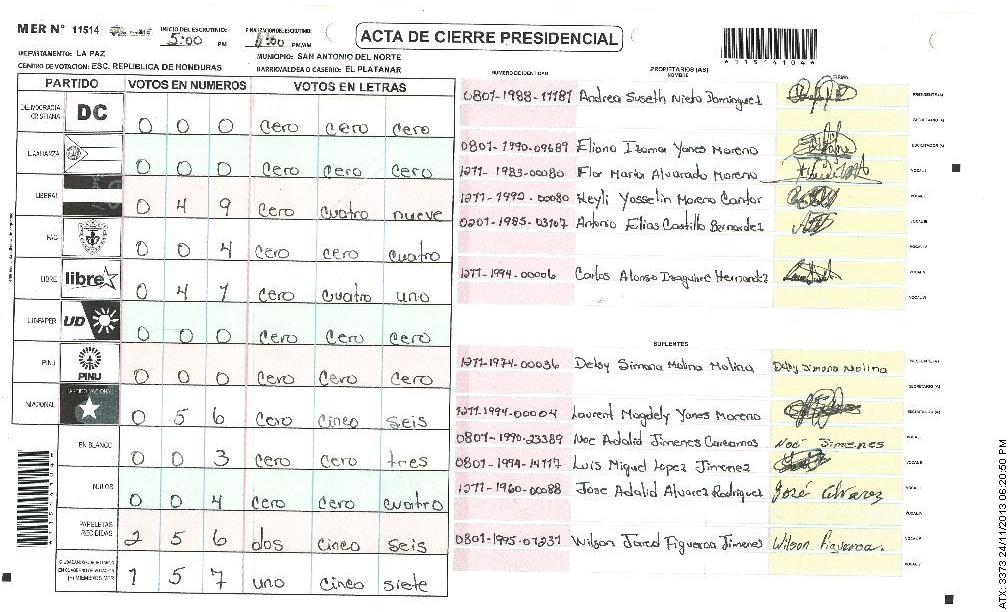 MER N° 11514
INICIO DEL ESCRUTINIO: 5:00 PM
FINALIZACION DEL ESCRUTINIO: :00 PM/AM
ACTA DE CIERRE PRESIDENCIAL
DEPARTAMENTO: LA PAZ
MUNICIPIO: SAN ANTONIO DEL NORTE
CENTRO DE VOTACION: ESC. REPUBLICA DE HONDURAS
BARRIO/ALDEA O CASERIO: EL PLATANAR
PARTIDO VOTOS EN NUMEROS VOTOS EN LETRAS
DEMOCRACIA CRISTIANA DC 0 0 0 cero cero cero
0 0 0 cero cero cero
LIBERAL 0 4 9 cero cuatro nueve
PAC 0 0 4 cero cero cuatro
LIBRE libre 0 4 1 cero cuatro uno
UD-FAPER UD 0 0 0 cero cero cero
PINU PINU 0 0 0 cero cero cero
NACIONAL PARTIDO NACIONAL 0 5 6 cero cinco seis
EN BLANCO 0 0 3 cero cero tres
NULOS 0 0 4 cero cero cuatro
PAPELETAS RECIBIDAS 2 5 6 dos cinco seis
1 5 7 uno cinco siete
NUMERO DE IDENTIDAD PROPIETARIOS (AS) NOMBRE FIRMA
0801-1988-11181 Andrea Suseth Nieto Dominguez PRESIDENTE (A)
SECRETARIO (A)
0801-1990-09689 Eliana Itamar Yanes Moreno ESCRUTADOR (A)
1211-1983-00080 Flor Maria Alvarado Moreno VOCAL I
1211-1992-00080 Keyli Yosselin Moreno Cantor VOCAL II
0201-1985-03107 Antonio Elias Castillo Bernardez VOCAL III
VOCAL IV
1211-1994-00006 Carlos Alonso Izaguirre Hernandez VOCAL V
VOCAL VI
SUPLENTES
1211-1974-00036 Delby Simona Molina Molina Delby Simona Molina
SECRETARIO (A)
1211-1994-00004 Laurent Magdely Yanes Moreno
0801-1990-23389 Noe Adalid Jimenes Carcamos Noé Jimenes
0801-1994-14117 Luis Miguel Lopez Jimenez
1211-1960-00088 Jose Adalid Alvarez Rodriguez José Alvarez
0801-1995-07231 Wilson Jared Figueroa Jimenes Wilson Figueroa.
ATX: 3373 24/11/2013 06:20:50 PM